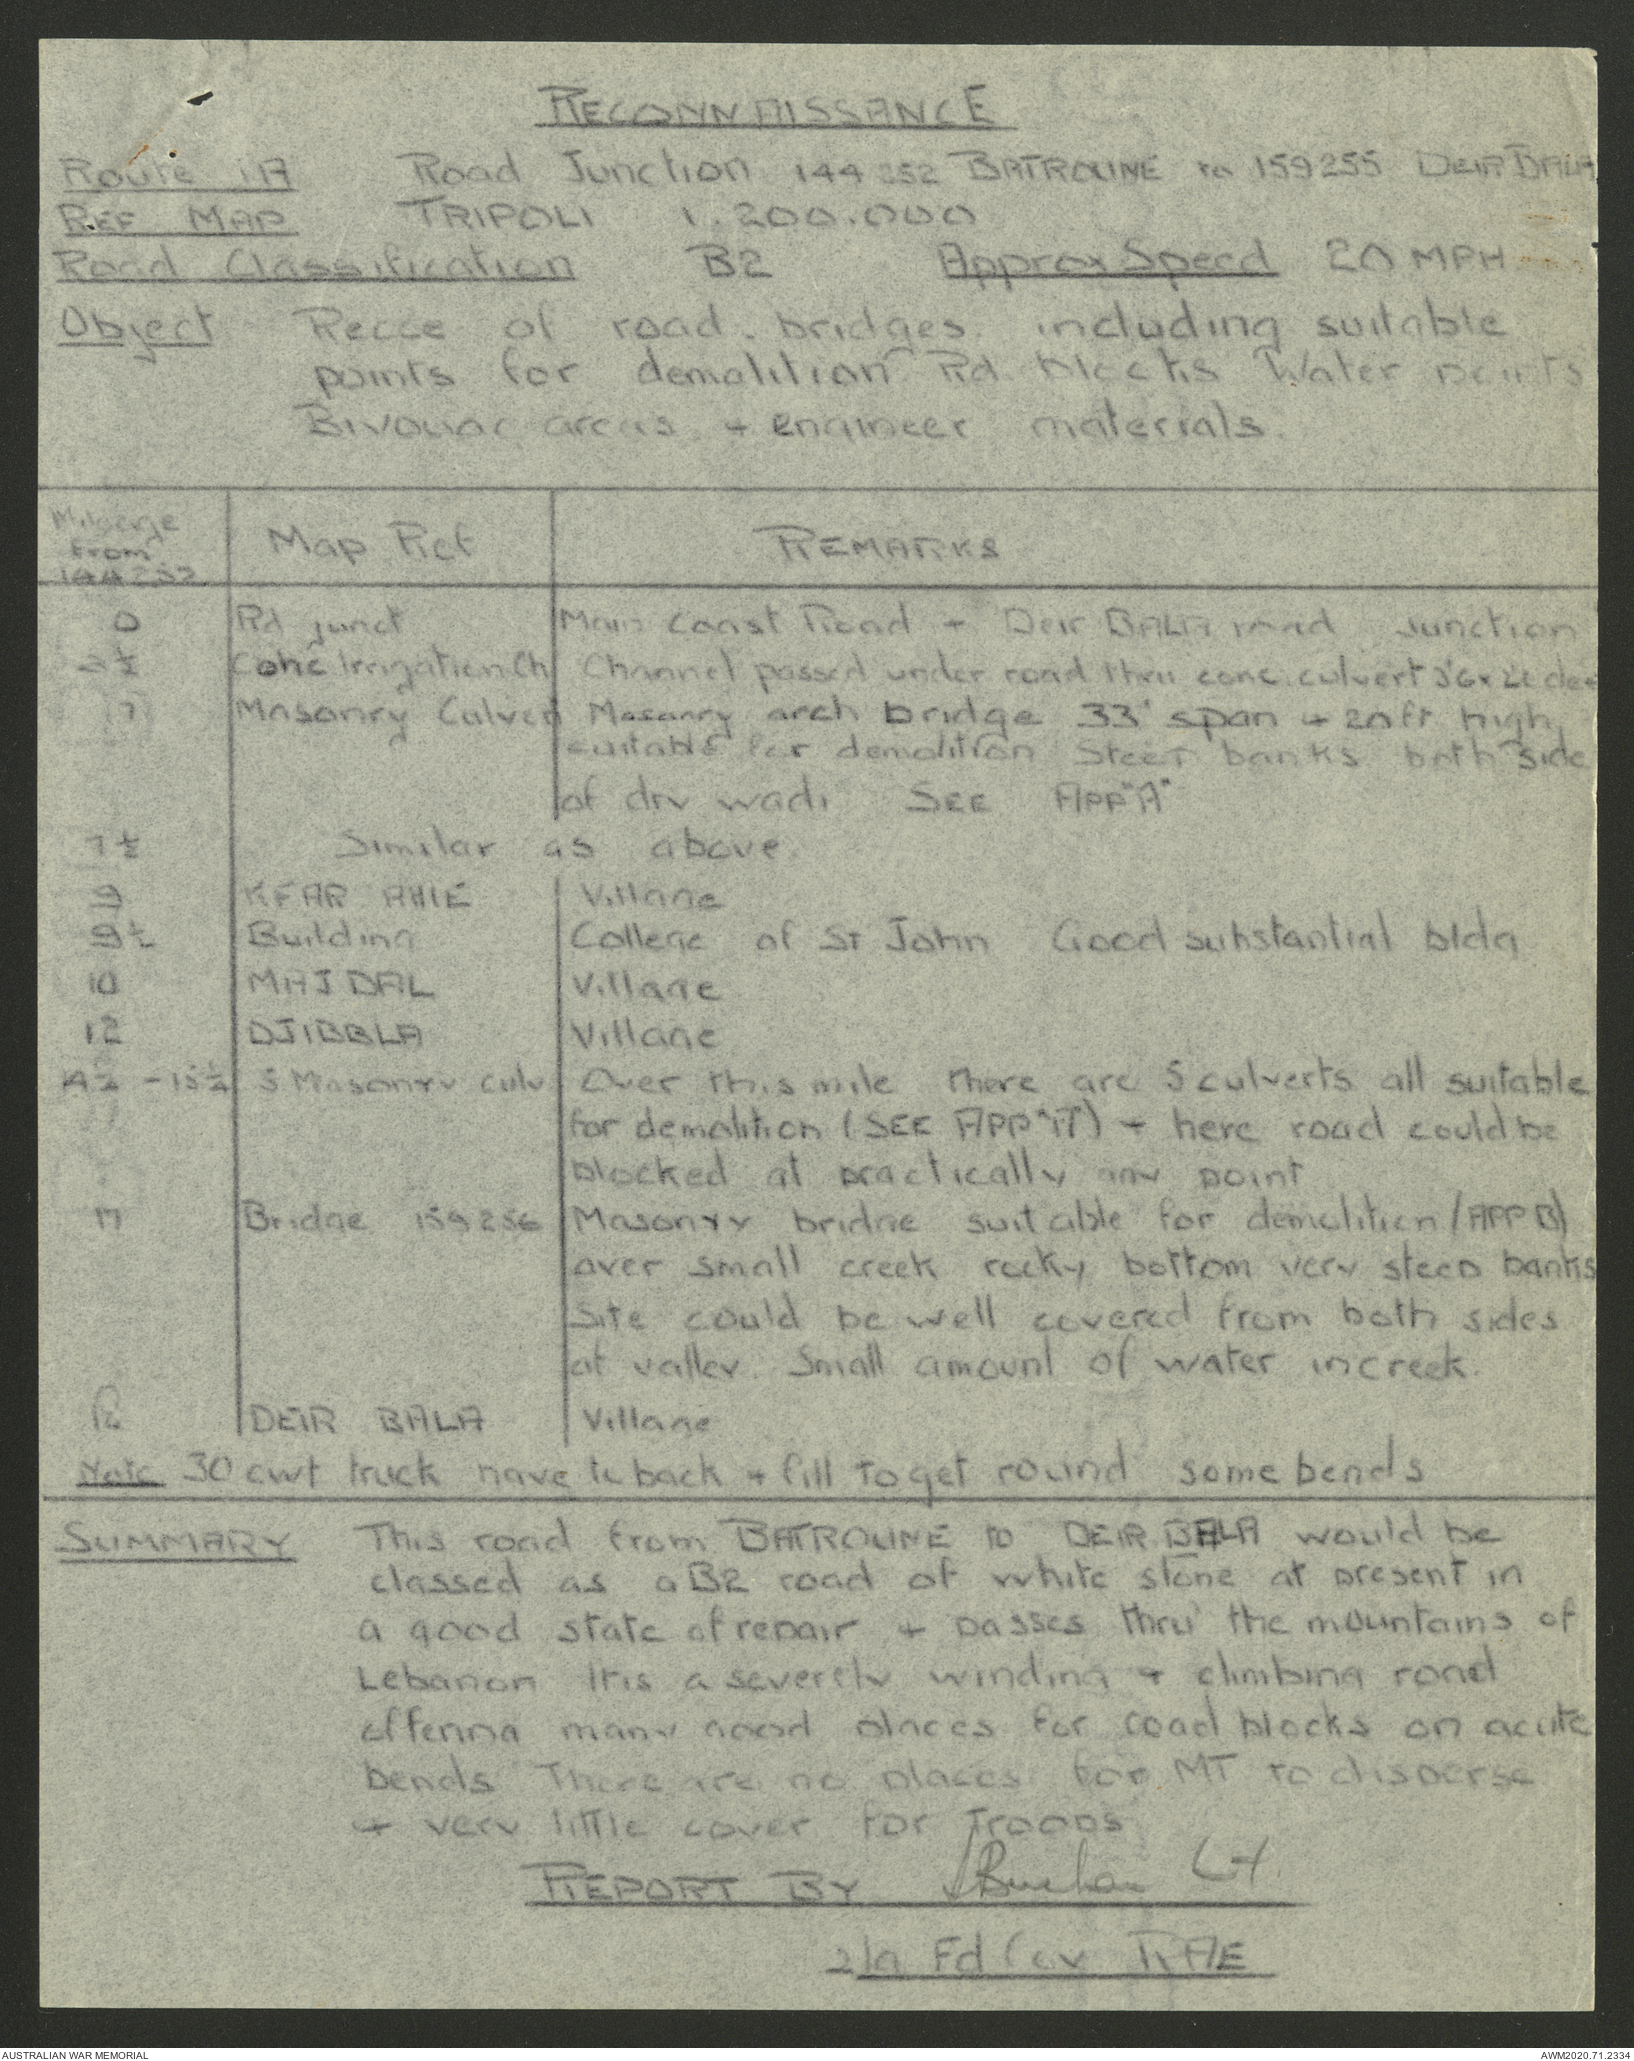 RECONNAISSANCE
Route 1A Road Junction 144252 BATROUNE to 159255 DEIR BALA
REF MAP TRIPOLI 1.200.000
Road Classification B2 Approx Speed 20 MPH
Object Recce of road. bridges. including suitable
points for demolition Rd blocks Water points
Bivouac areas + engineer materials.
Mileage
from
144252
Map Ref REMARKS
0 Rd junct Main Coast Road + Deir BALA road Junction
Conc Irrigation Ch Channel passed under road thru conc. culvert
7 Masonry Culvert Masonry arch bridge 33' span + 20ft high,
suitable for demolition Steep banks both side
of dry wadi SEE APP "A"
7½ Similar as above.
9 KFAR AHIE Village
9½ Building College of St John Good substantial bldg
10 MAJDAL Village
12 DJIBBLA Village
14½ - 15½ 5 Masonry culv Over this mile there are 5 culverts all suitable
for demolition (SEE APP "A") + here road could be
blocked at practically any point
17 Bridge 159256 Masonry bridge suitable for demolition (APP B)
over small creek rocky bottom very steep banks
Site could be well covered from both sides
of valley. Small amount of water in creek.
DEIR BALA Village
Note 30 cwt truck have to back + fill to get round some bends
SUMMARY This road from BATROUNE to DEIR BALA would be
classed as a B2 road of white stone at present in
a good state of repair + passes thru' the mountains of
Lebanon It is a severely winding + climbing road
offering many good places for road blocks on acute
bends There are no places for MT to disperse
+ very little cover for Troops
REPORT BY Lt.
Fd Coy RAE
AUSTRALIAN WAR MEMORIAL AWM2020.71.2334